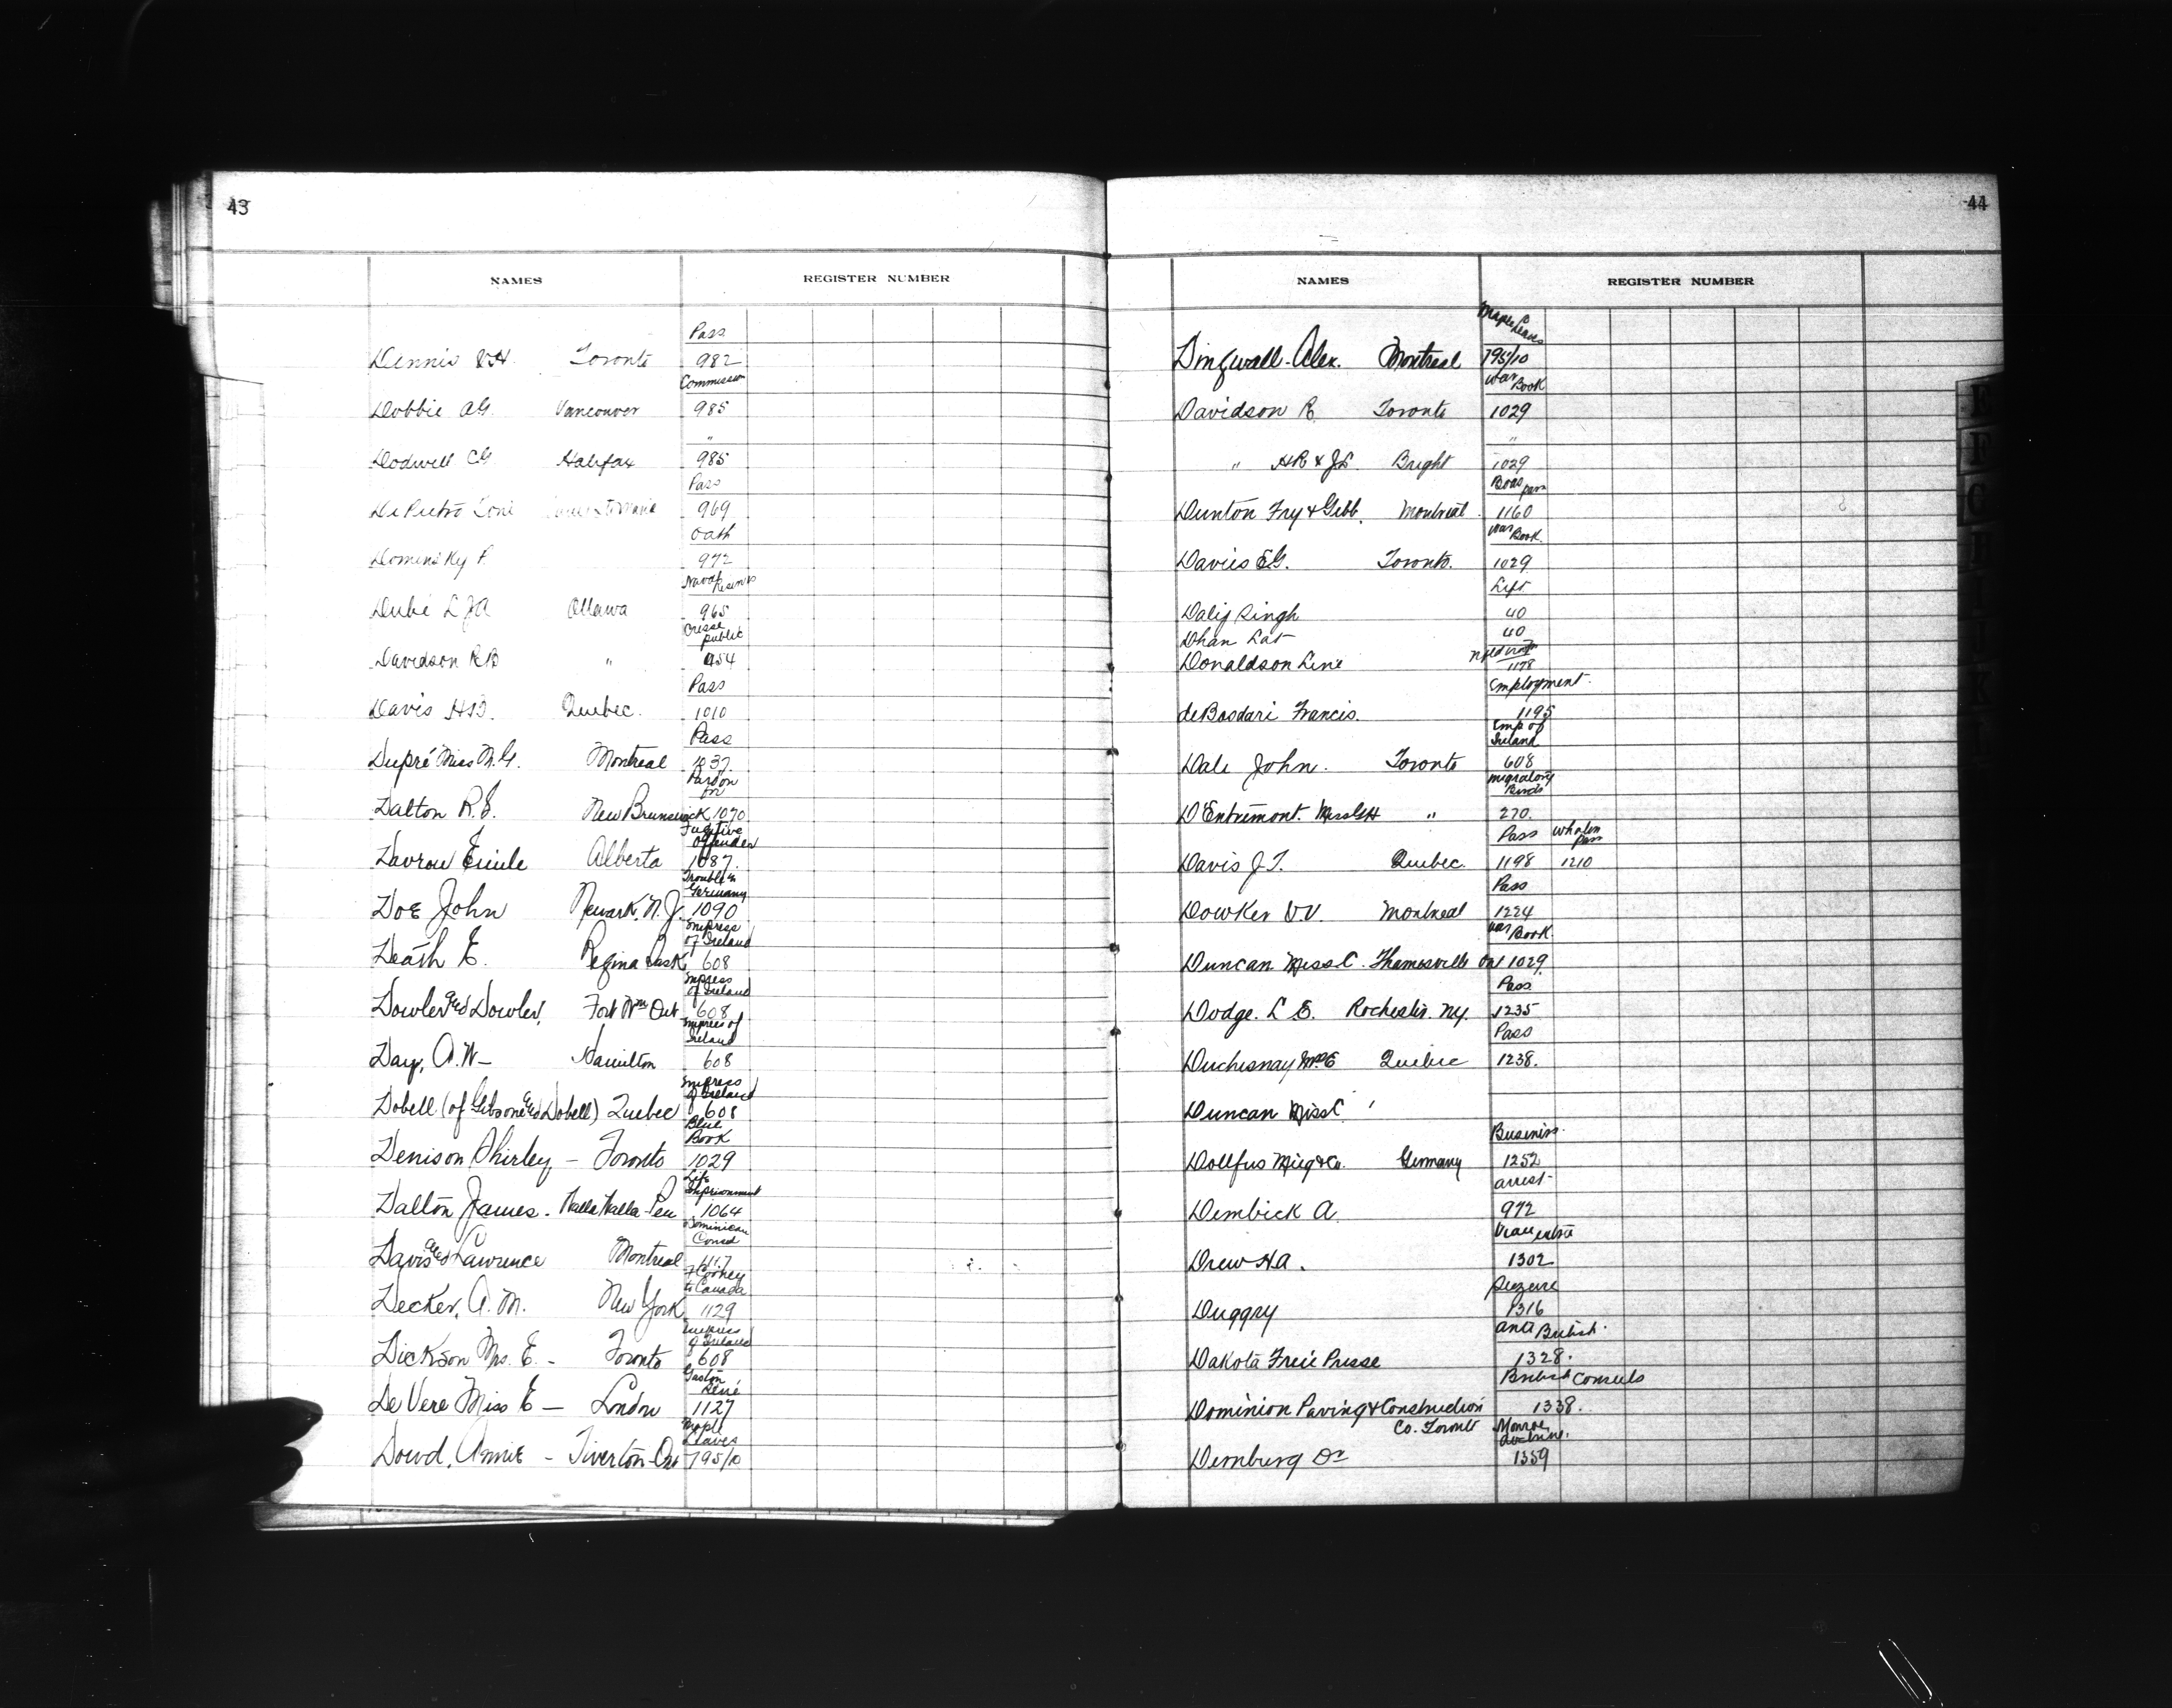 43
NAMES REGISTER NUMBER
Pass
Dennis Toronto 982
Commission
Dobbie A G. Vancouver 985
"
Dodwell C G Halifax 985
Pass
DePietro 969
Oath
Dominsky P. 972
Naval Reserves
Dubé L J A Ottawa 965
public
Davidson R B " 954
Pass
Davis H. Quebec. 1010
Pass
Dupré Miss M. G. Montreal 1037
Pardon for
Dalton R. E. New Brunswick 1070
Fugitive Offender
Emile Alberta 1087.
Trouble in Germany
Doe John Newark, N. J. 1090
Empress of Ireland
Death E. Regina Sask 608
Empress of Ireland
Dowler and Dowler, Fort Wm Ont 608
Empress of Ireland
Day, A. W- Hamilton 608
Empress of Ireland
Dobell (of Gibsone and Dobell) Quebec 608
Blue Book
Denison Shirley, - Toronto 1029
Life Imprisonment
Dalton James. Walla Walla Pen 1064
Dominican Consul
Davis and Lawrence Montreal 1117
to Canada
Decker, A. M. New York 1129
Empress of Ireland
Dickson Mrs. E. - Toronto 608
Gaston René
DeVere Miss E - London 1127
Maple Leaves
Dowd, Annie - Tiverton Ont 795/10
44
NAMES REGISTER NUMBER
Maple Leaves
Dingwall-Alex. Montreal 795/10
War Book
Davidson R. Toronto 1029
"
" H R & J L. Bright 1029
Dunton Fry & Gibb. Montreal. 1160
War Book.
Davies E G. Toronto. 1029
Left
Dalij Singh 40
Dhan Lal 40
Donaldson Line 1178
Employment.
deBosdari Francis. 1195
Emp of Ireland
Dale John. Toronto 608
Migratory Birds
D'Entremont. Miss " 270.
Pass Whalen Pass
Davis J. T. Quebec. 1198 1210
Pass
Dowker Montreal 1224
War Book.
Duncan Miss C. Thamesville Ont 1029.
Pass
Dodge. L E. Rochester. N.Y. 1235
Pass
Duchesnay Quebec 1238.
Duncan Miss C '
Business.
Dollfus Mieg & Co. Germany 1252
arrest-
Dembick A 972
Drew H A. 1302
Seizure
Duggry 1316
Anti British.
Dakota Freie Presse 1328.
British Consuls
Dominion Paving & Construction 1338.
Co. Toronto
Monroe doctrine.
Dernburg Dr 1359